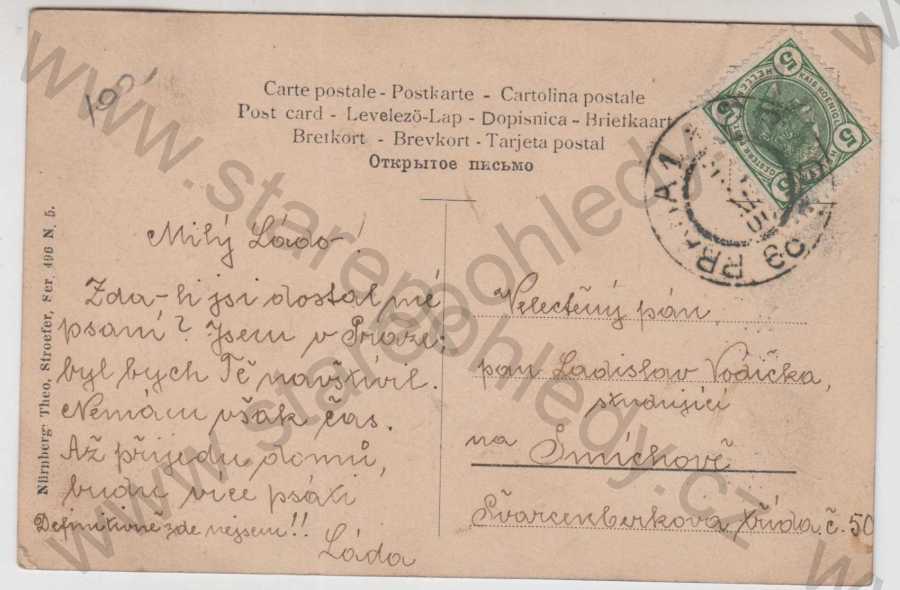 1901
Carte postale - Postkarte - Cartolina postale
Post card - Levelezö-Lap - Dopisnica - Briefkaart
Brefkort - Brevkort - Tarjeta postal
Открытое письмо
Nürnberg: Theo. Stroefer, Ser. 496 N. 5.
Milý Ládo!
Zda-li jsi dostal mé
psaní? Jsem v Praze.
byl bych Tě navštívil.
Nemám však čas.
Až přijedu domů,
budu více psáti
Definitivně zde nejsem!!
Láda
Velectěný pán
pan Ladislav Vodička,
studující
na Smíchově
Švarcenberkova třída č. 50
PRAHA 1
5
5
5
5
www.starepohledy.cz
www.starepohledy.cz